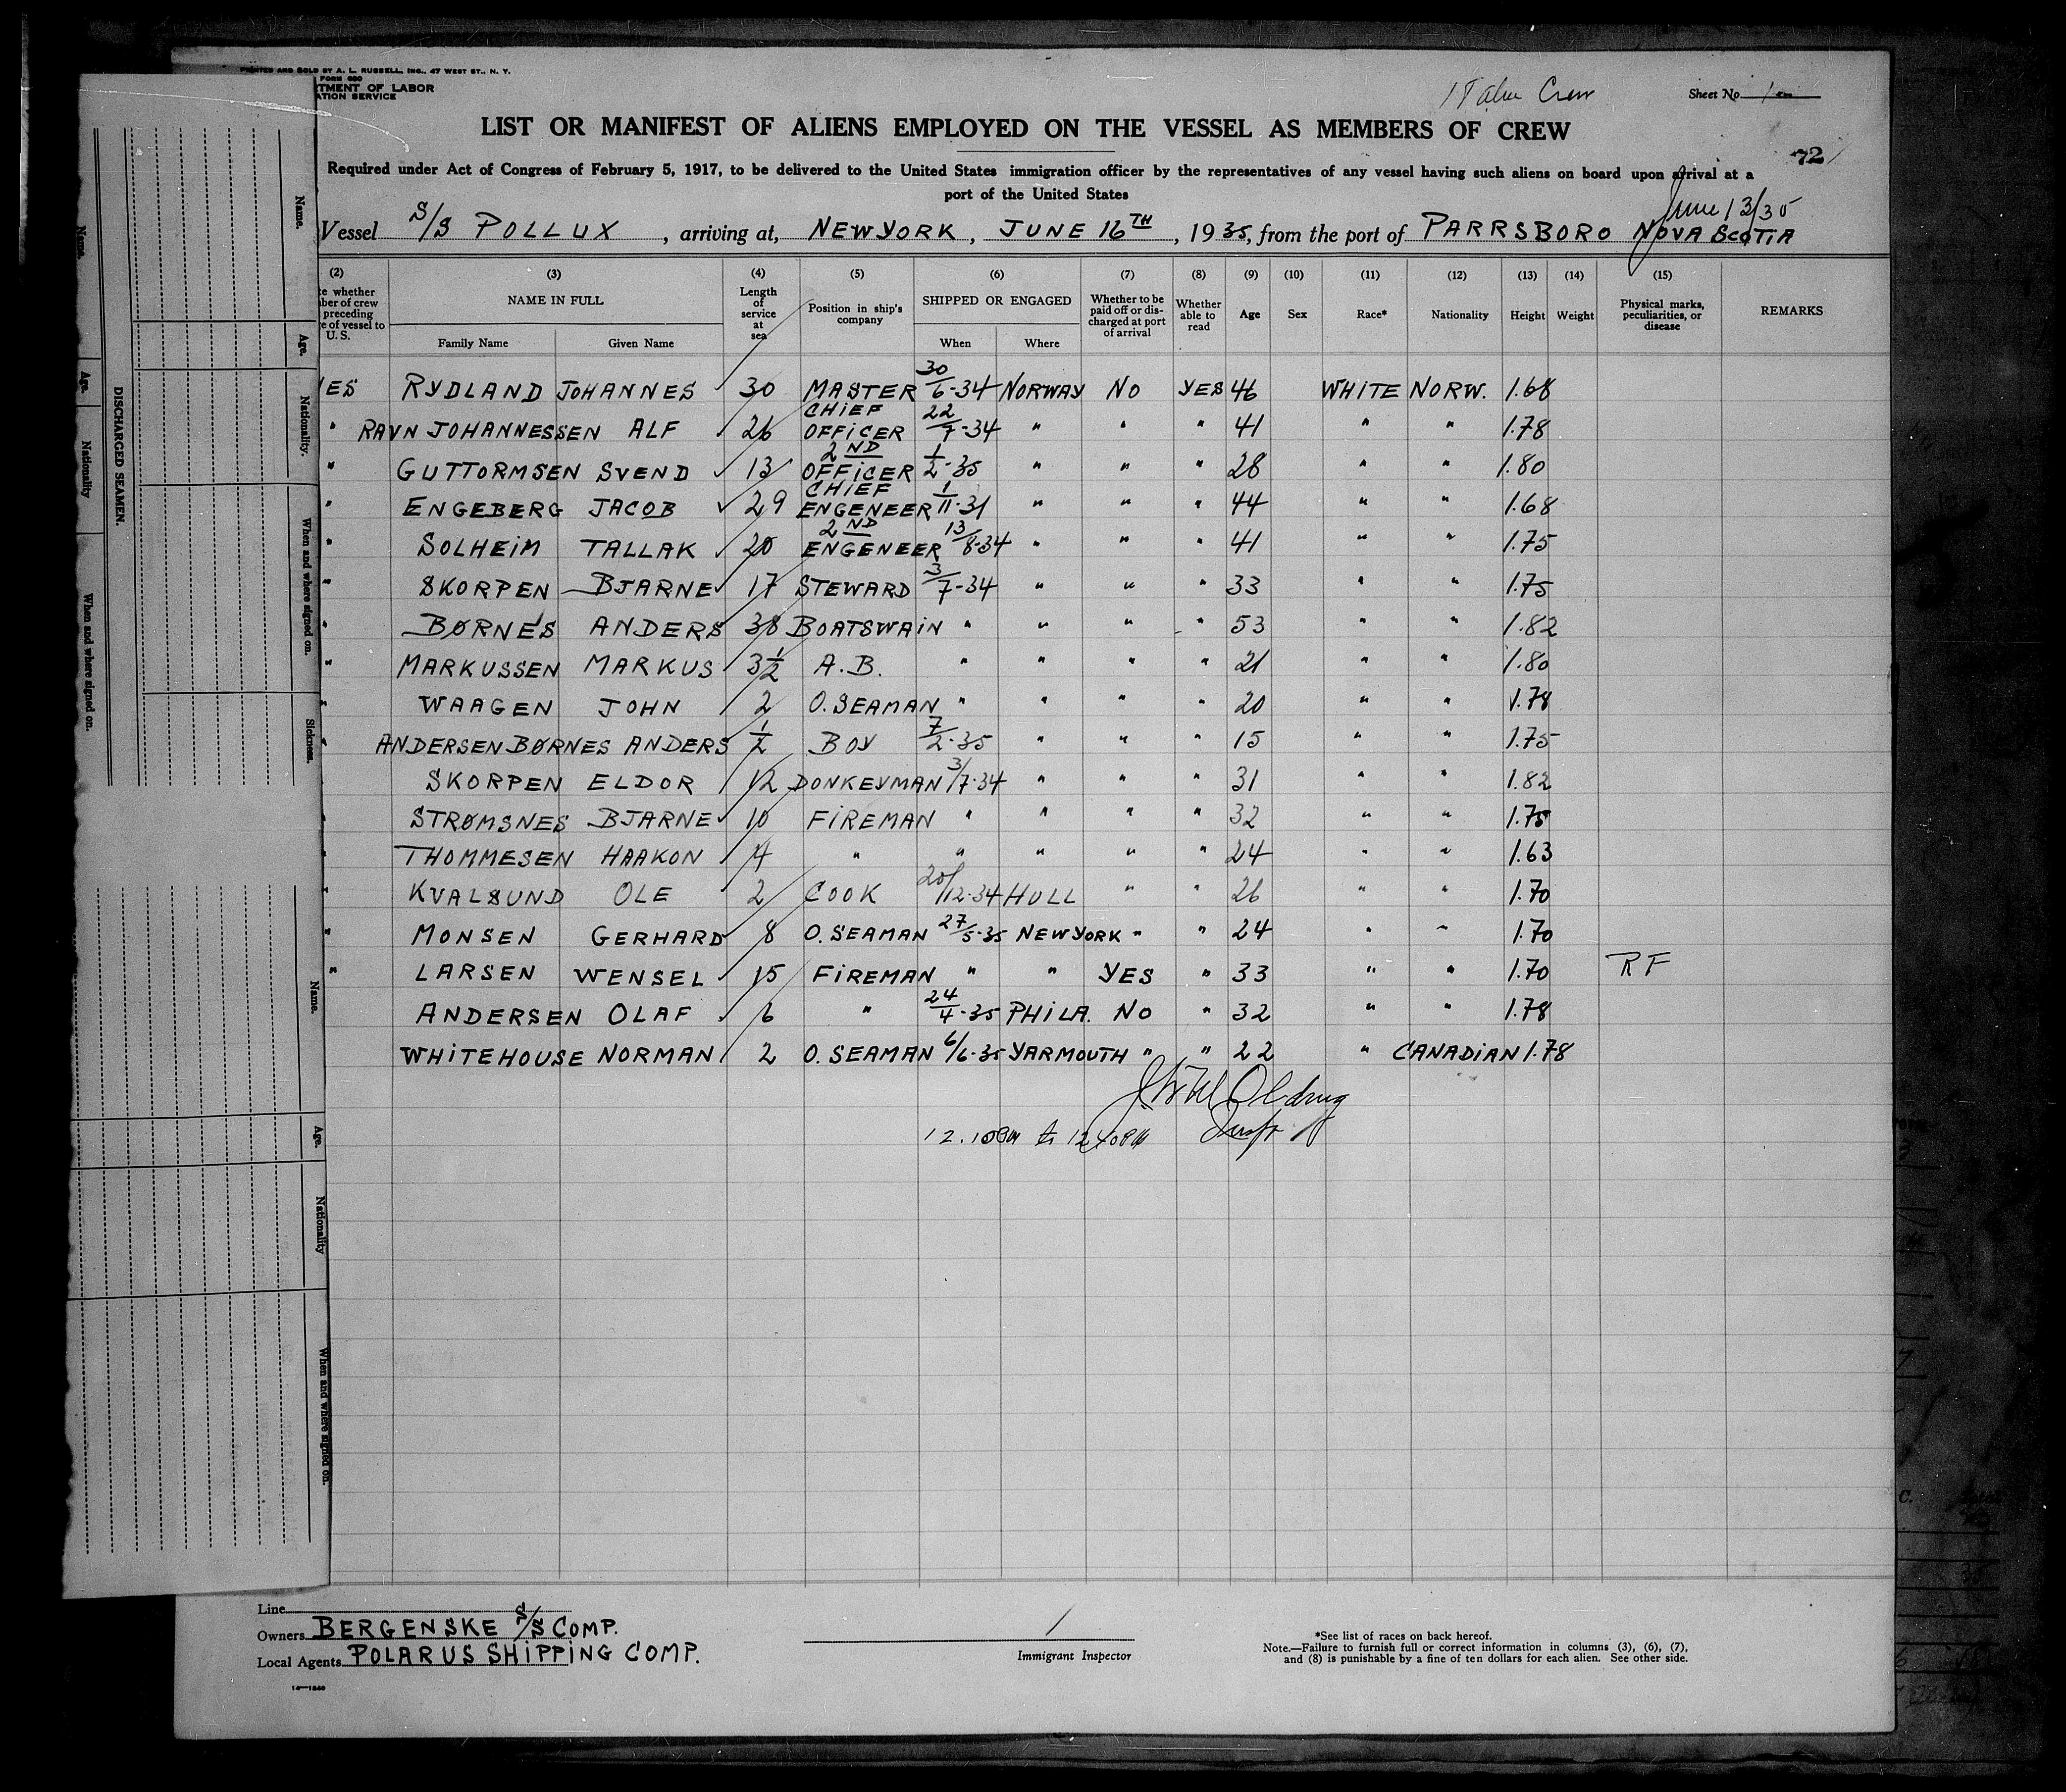 PRINTED AND SOLD BY A. L. RUSSELL, INC., 47 WEST ST., N. Y.
FORM 680
TMENT OF LABOR
ATION SERVICE
Crew
Sheet No. 1
LIST OR MANIFEST OF ALIENS EMPLOYED ON THE VESSEL AS MEMBERS OF CREW
72
Required under Act of Congress of February 5, 1917, to be delivered to the United States immigration officer by the representatives of any vessel having such aliens on board upon arrival at a
port of the United States
June 13/35
Vessel S/S POLLUX, arriving at, NEW YORK, JUNE 16TH, 1935, from the port of PARRSBORO NOVA SCOTIA
(2) (3) (4) (5) (6) (7) (8) (9) (10) (11) (12) (13) (14) (15)
e whether
ber of crew
preceding
e of vessel to
U. S.
NAME IN FULL
Family Name Given Name
Length
of
service
at
sea
Position in ship's
company
SHIPPED OR ENGAGED
When Where
Whether to be
paid off or dis-
charged at port
of arrival
Whether
able to
read
Age
Sex
Race*
Nationality
Height
Weight
Physical marks,
peculiarities, or
disease
REMARKS
YES RYDLAND JOHANNES 30 MASTER 30/6-34 NORWAY NO YES 46 WHITE NORW. 1.68
" RAVN JOHANNESSEN ALF 26 CHIEF OFFICER 22/7-34 " " " 41 " " 1.78
" GUTTORMSEN SVEND 13 2ND OFFICER 1/2-35 " " " 28 " " 1.80
" ENGEBERG JACOB 29 CHIEF ENGENEER 1/11-31 " " " 44 " " 1.68
" SOLHEIM TALLAK 20 2ND ENGENEER 13/8-34 " " " 41 " " 1.75
" SKORPEN BJARNE 17 STEWARD 3/7-34 " " " 33 " " 1.75
" BØRNES ANDERS 38 BOATSWAIN " " " " 53 " " 1.82
" MARKUSSEN MARKUS 3 1/2 A.B. " " " " 21 " " 1.80
" WAAGEN JOHN 2 O. SEAMAN " " " " 20 " " 1.78
" ANDERSEN BØRNES ANDERS 1/2 BOY 7/2-35 " " " 15 " " 1.75
SKORPEN ELDOR 12 DONKEYMAN 3/7-34 " " " 31 " " 1.82
" STRØMSNES BJARNE 10 FIREMAN " " " " 32 " " 1.75
" THOMMESEN HAAKON 4 " " " " " 24 " " 1.63
" KVALSUND OLE 2 COOK 20/12-34 HULL " " 26 " " 1.70
" MONSEN GERHARD 8 O. SEAMAN 27/5-35 NEW YORK " " 24 " " 1.70
" LARSEN WENSEL 15 FIREMAN " " YES " 33 " " 1.70 RF
ANDERSEN OLAF 6 " 24/4-35 PHILA. NO " 32 " " 1.78
WHITEHOUSE NORMAN 2 O. SEAMAN 6/6-35 YARMOUTH " " 22 " CANADIAN 1.78
Line
Owners BERGENSKE S/S COMP.
Local Agents POLARUS SHIPPING COMP.
14—1240
Immigrant Inspector
*See list of races on back hereof.
Note.—Failure to furnish full or correct information in columns (3), (6), (7),
and (8) is punishable by a fine of ten dollars for each alien. See other side.
DISCHARGED SEAMEN.
Name.
Age.
Nationality
When and where signed on.
Name.
Age.
Nationality.
When and where signed on.
Sickness.
Name.
Age.
Nationality
When and where signed on.